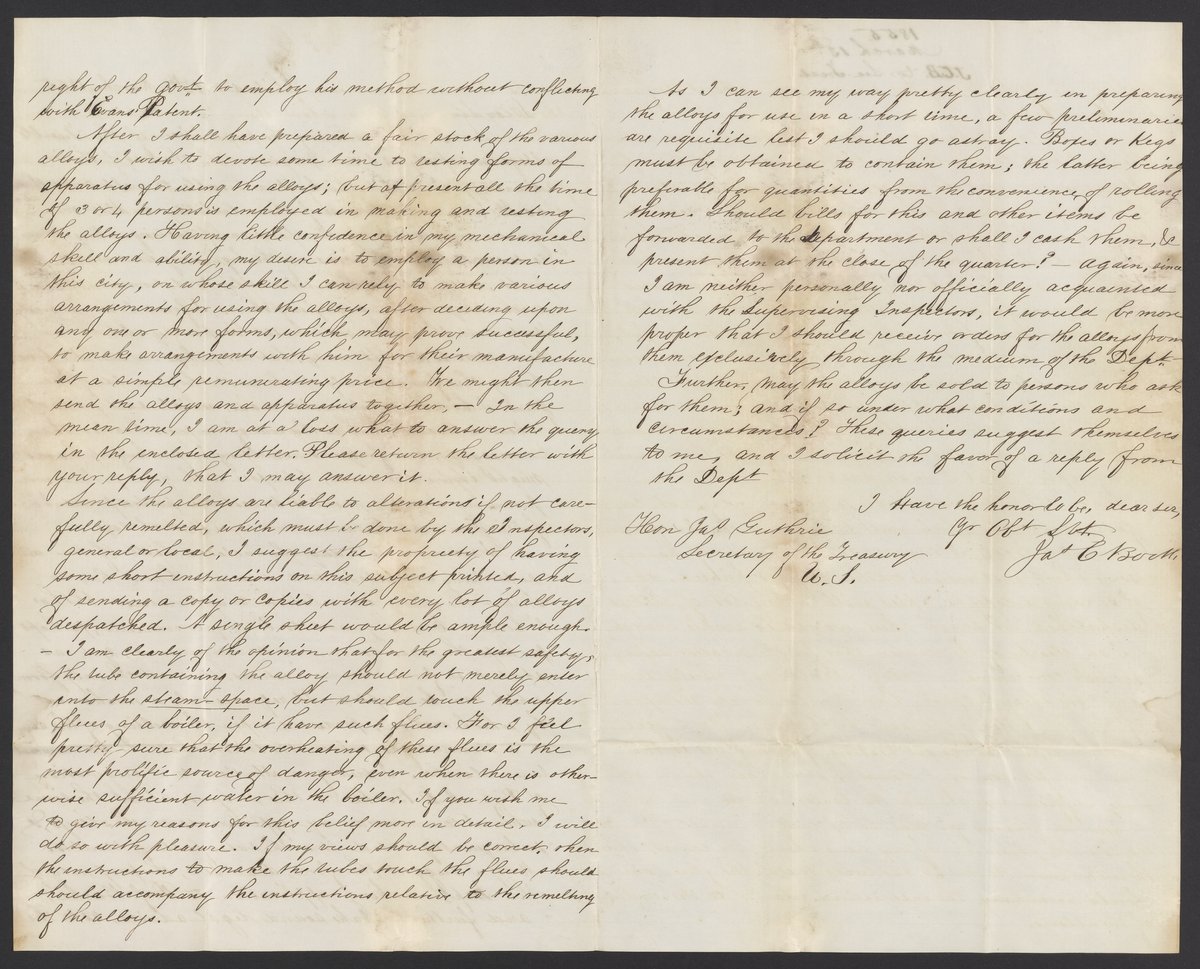 right of the govt. to employ his method without conflicting
with Evans' Patent.
After I shall have prepared a fair stock of the various
alloys, I wish to devote some time to testing forms of
apparatus for using the alloys; but at present all the time
of 3 or 4 persons is employed in making and testing
the alloys. Having little confidence in my mechanical
skill and ability, my desire is to employ a person in
this city, on whose skill I can rely to make various
arrangements for using the alloys, after deciding upon
any one or more forms, which may prove successful,
to make arrangements with him for their manufacture
at a simple remunerating price. We might then
send the alloys and apparatus together. — In the
mean time, I am at a loss what to answer the query
in the inclosed letter. Please return the letter with
your reply, that I may answer it.
Since the alloys are liable to alterations if not care-
fully remelted, which must be done by the Inspectors,
general or local, I suggest the propriety of having
some short instructions on this subject printed, and
of sending a copy or copies with every lot of alloys
despatched. A single sheet would be ample enough.
— I am clearly of the opinion that for the greatest safety,
the tube containing the alloy should not merely enter
into the steam-space, but should touch the upper
flues of a boiler, if it have such flues. For I feel
pretty sure that the overheating of these flues is the
most prolific source of danger, even when there is other-
wise sufficient water in the boiler. If you wish me
to give my reasons for this belief more in detail, I will
do so with pleasure. If my views should be correct, then
the instructions to make the tubes touch the flues should
should accompany the instructions relative to the remelting
of the alloys.
1856
March 13th
As I can see my way pretty clearly in preparing
the alloys for use in a short time, a few preliminaries
are requisite lest I should go astray. Boxes or Kegs
must be obtained to contain them; the latter being
preferable for quantities from the convenience of rolling
them. Should bills for this and other items be
forwarded to the department or shall I cash them, &
present them at the close of the quarter? — again, since
I am neither personally nor officially acquainted
with the Supervising Inspectors, it would be more
proper that I should receive orders for the alloys from
them exclusively through the medium of the Dept.
Further, may the alloys be sold to persons who ask
for them; and if so under what conditions and
circumstances? These queries suggest themselves
to me, and I solicit the favor of a reply from
the Dept
I have the honor to be, dear sir,
Hon Jas Guthrie Yr Obt Svt
Secretary of the Treasury Jas C Booth
U. S.